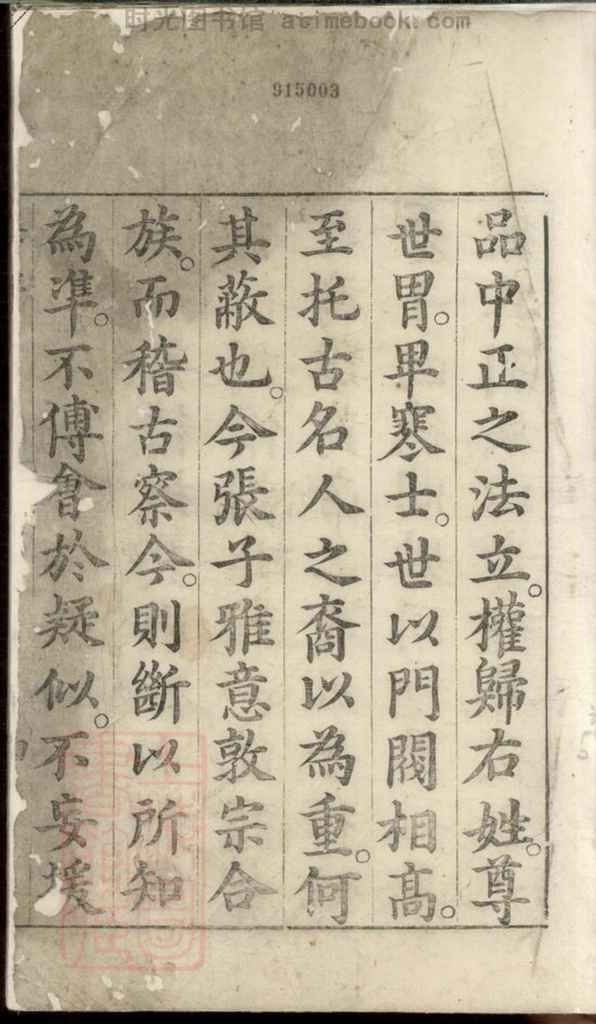 时光图书馆 atimebook.com
915003
品中正之法立。權歸右姓。尊
世胃。卑寒士。世以門閥相高。
至托古名人之裔以為重。何
其蔽也。今張子雅意敦宗合
族。而稽古察今。則斷以所知
為準。不傅會於疑似。不妄援